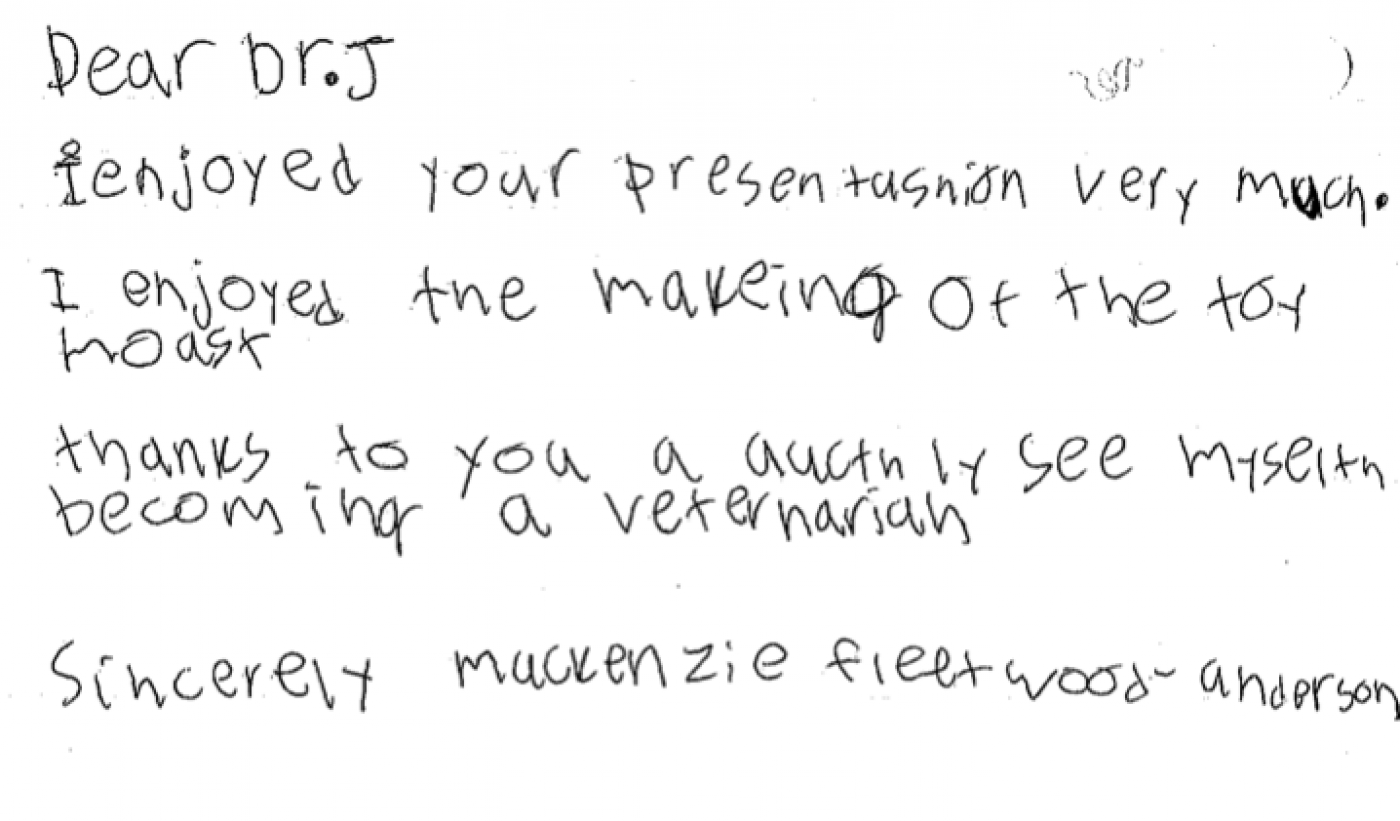 Dear Dr.J
i enjoyed your presentashion very much.
I enjoyed the makeing of the toy
moast
thanks to you a aucthly see myselth
becoming a veternarian
Sincerely mackenzie fleetwood-anderson